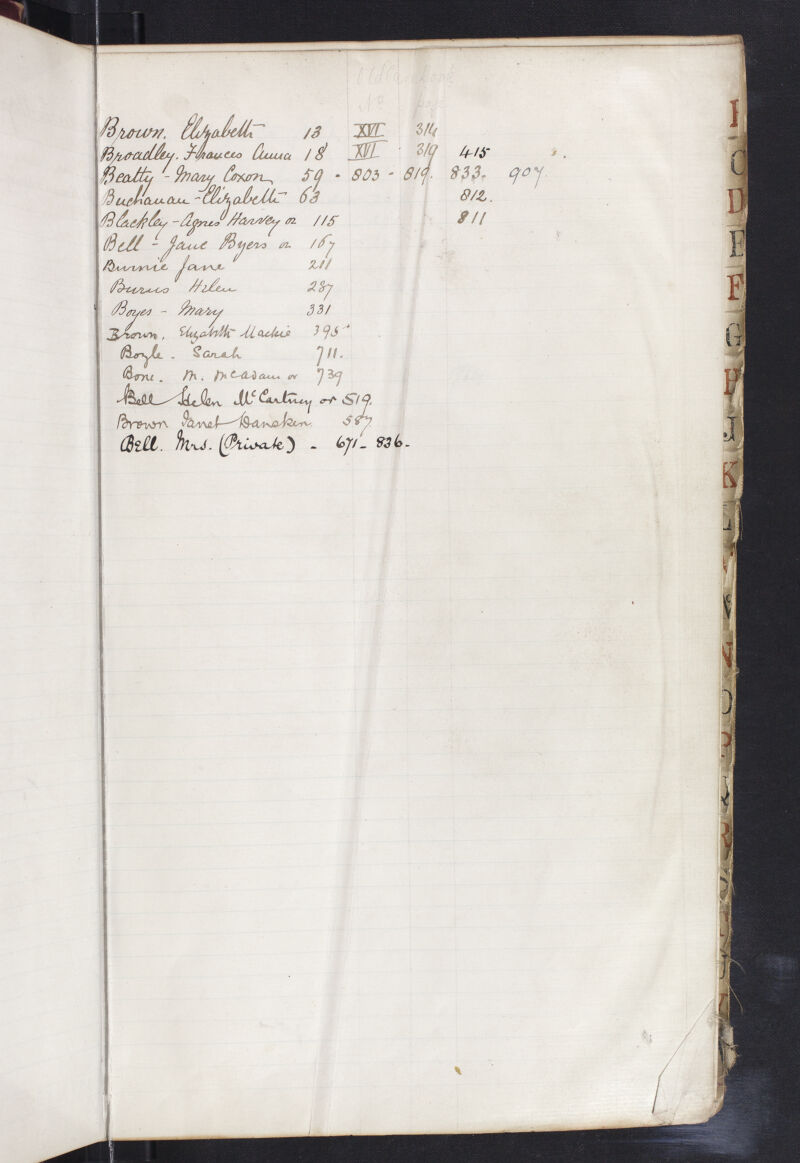 Old Casebook
No page
Brown. Elizabeth 13 XVI 314
Broadley. Frances Anna 18 XVI 319 415
Beatty - Mary Coxon 59 - 803 - 819. 833. 907
Buchanan - Elizabeth 63 812.
Blackley - Agnes Harvey or 115 811
Bell - Jane Byers or 167
Burnie Jane 211
Burns Helen 287
Boyes - Mary 331
Brown. Elizabeth Mackie 395
Boyle. Sarah 711.
Bone. M. McAdam or 739
Bell Helen McCartney or 519.
Brown Janet 587
Bell. Mrs. (Private) - 671 - 836 -
B
C
D
E
F
G
H
J
K
L
M
N
O
P
Q
R
S